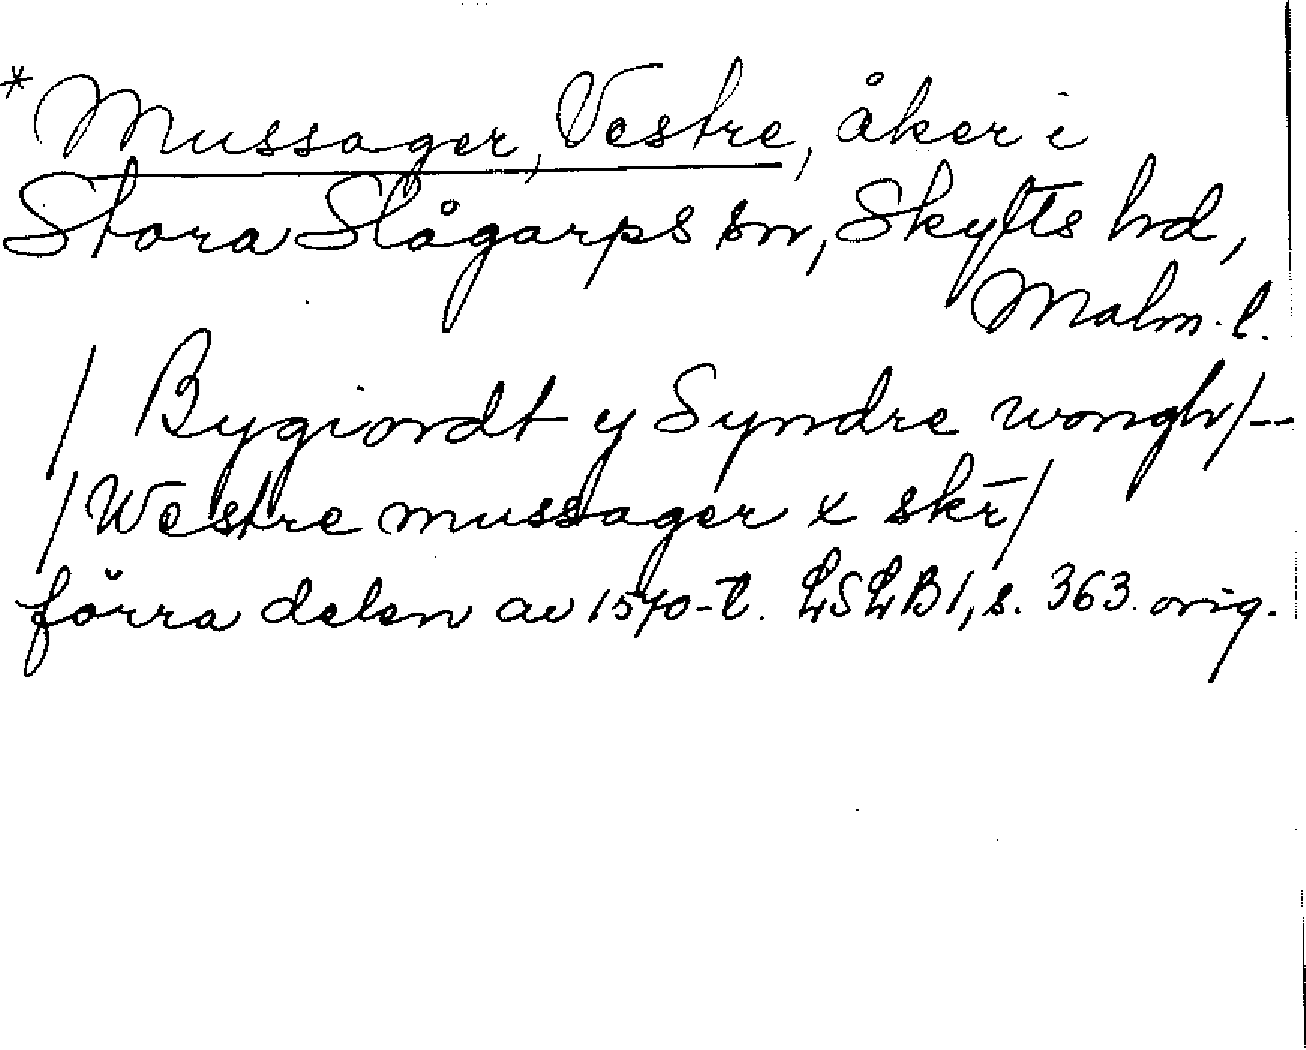 *Mussager, Vestre, åker i
Stora Slågarps sn, Skytts hd,
Malm. l.
/ Bygiordt y Syndre wongh/--
/Westre mussager x skr̄/
förra delen av 1570-t. LSLB1, s. 363. orig.